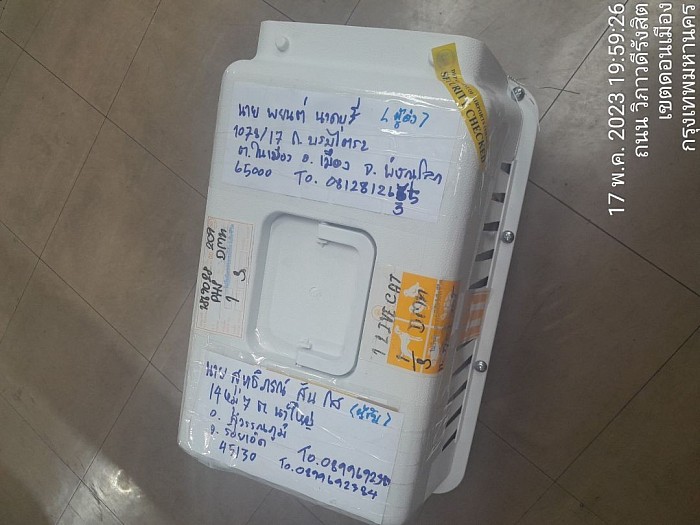 17 พ.ค. 2023 19:59:26
ถนน วิภาวดีรังสิต
เขตดอนเมือง
กรุงเทพมหานคร
SECURITY CHECKED
นาย พยนต์ นาคบุรี (ผู้ส่ง)
1078/17 ถ. บรมไตรฯ
ต. ในเมือง อ. เมือง จ. พิษณุโลก
65000 To. 081281265
3
209
PHS DMK
1 3
1 LIVE CAT
1 DMK
3
นาย สุทธิภรณ์ สันโส (ผู้รับ)
14 หมู่ 7 ต. นาใหญ่
อ. สุวรรณภูมิ
จ. ร้อยเอ็ด
45130
To. 0899692384